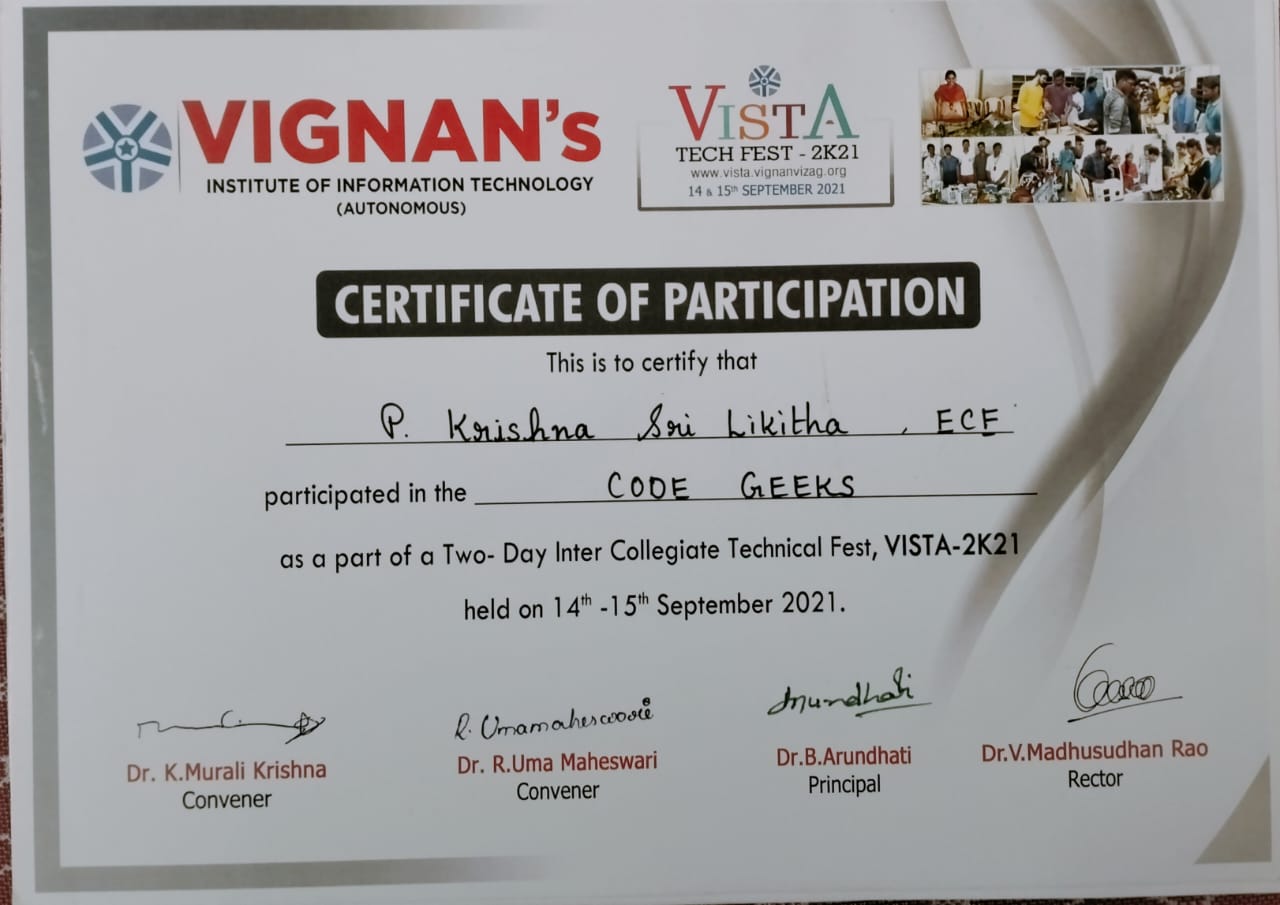 VIGNAN's
INSTITUTE OF INFORMATION TECHNOLOGY
(AUTONOMOUS)
VISTA
TECH FEST - 2K21
www.vista.vignanvizag.org
14 & 15th SEPTEMBER 2021
CERTIFICATE OF PARTICIPATION
This is to certify that
P. Krishna Sri Likitha , ECE
participated in the CODE GEEKS
as a part of a Two- Day Inter Collegiate Technical Fest, VISTA-2K21
held on 14th -15th September 2021.
R. Umamaheswari Arundhati
Dr. K.Murali Krishna Dr. R.Uma Maheswari Dr.B.Arundhati Dr.V.Madhusudhan Rao
Convener Convener Principal Rector